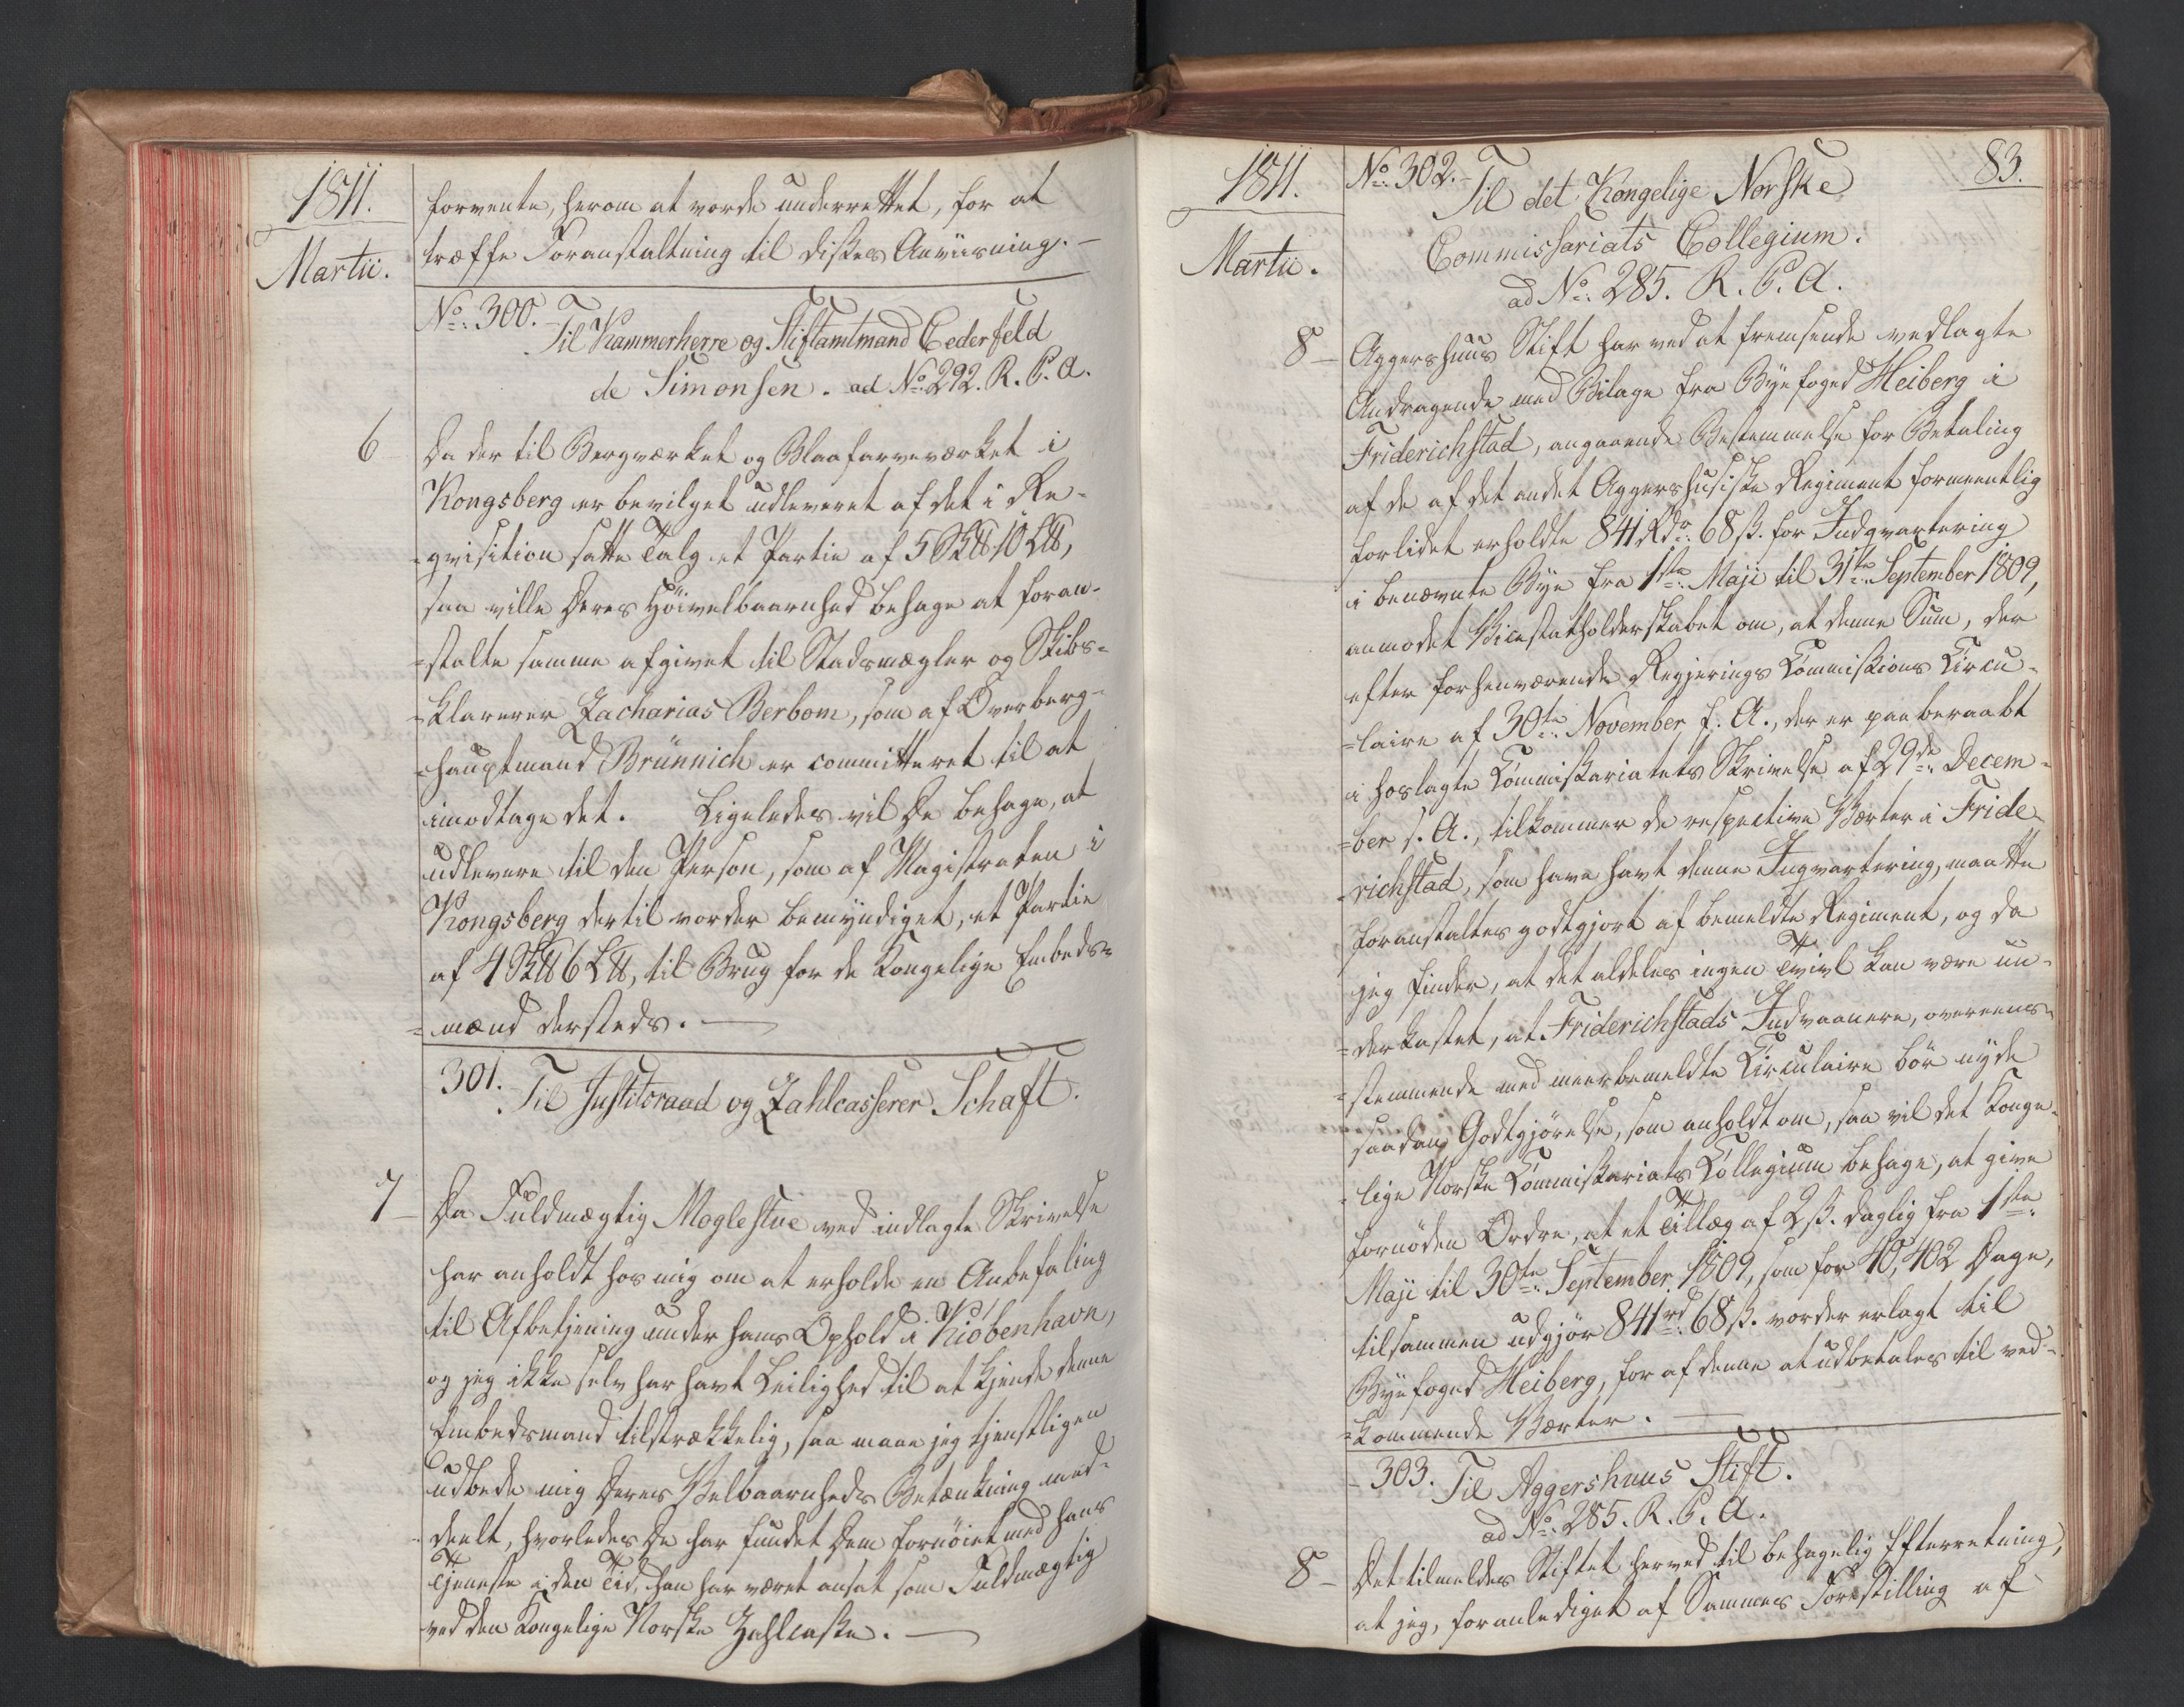 1811.
Martii.
forvente, herom at vorde underrettet, for at
træffe Foranstaltning til dissés Anviisning. –
No: 300.
Til Kammerherre og Stiftamtmand Cederfeld
de Simonsen. ad No: 292. R. C. A.
6
Da der til Bergværket og Blaafarveværket i
Kongsberg er bevilget udleveret af det i Re-
=qvisition satte Talg et Partie af 5 S℔ 10 L℔,
saa ville Deres Höivelbaarenhed behage at foran-
=stalte samme afgivet til Stadsmægler og Skibs-
=klarerer Zacharias Berbom, som af Overberg-
=hauptmand Brünnich er committeret til at
imodtage det. Ligeledes vil De behage, at
udlevere til den Person, som af Magistraten i
Kongsberg dertil vorder bemyndiget, et Partie
af 4 S℔ 6 L℔, til Brug for de Kongelige Embeds-
=mænd dersteds. –
301.
Til Justitsraad og Zahlcasserer Schaft.
7 –
Da Fuldmægtig Moglestue ved indlagte Skrivelse
har anholdt hos mig om at erholde en Anbefaling
til Afbetjening under hans Ophold i Kiöbenhavn,
og jeg ikke selv har havt Leilighed til at kjende denne
Embedsmand tilstrækkelig, saa maae jeg tjenstligen
udbede mig Deres Velbaarenheds Betænkning med-
deelt, hvorledes De har fundet Dem fornöiet med hans
Tjeneste i den Tid, han har været ansat som Fuldmægtig
ved den Kongelige Norske Zahlcasse. –
83.
1811.
Martii.
No: 302.
Til det Kongelige Norske
Commissariats Collegium.
ad No: 285. R. C. A.
8 –
Aggershuus Stift har ved at fremsende vedlagte
Andragende med Bilage fra Byefoged Heiberg i
Friderichstad, angaaende Bestemmelse for Betaling
af de af det andet Aggershusiske Regiment formeentlig
forlidet erholdte 841 Rdr: 68 ß. for Indqvartering
i benævnte Bye fra 1ste: Maji til 31te: September 1809,
anmodet Vicestatholderskabet om, at denne Sum, der
efter forhenværende Regjerings Commissions Circu-
=laire af 30te: November f. A., der er paaberaabt
i hoslagte Commissariatets Skrivelse af 29de: Decem-
=ber s. A., tilkommer de respective Værter i Fride-
=richstad, som have havt denne Inqvartering, maatte
foranstaltes godtgjort af bemeldte Regiment, og da
jeg finder, at det aldeles ingen Tvivl kan være un-
=derkastet, at Friderichstads Indvaanere, overeens-
=stemmende med meerbemeldte Circulaire bör nyde
saadan Godtgjörelse, som anholdt om, saa vil det Konge-
=lige Norske Commissariats Collegium behage, at give
fornöden Ordre, at et Tillæg af 2 ß. daglig fra 1ste:
Maji til 30te: September 1809, som for 40,402 Dage,
tilsammen udgjör 841 rd: 68 ß. vorder erlagt til
Byefoged Heiberg, for af denne at udbetales til ved-
=kommende Værter. –
303. Til Aggershuus Stift.
ad No: 285. R. C. A.
8 –
Det tilmeldes Stiftet herved til behagelig Efterretning,
at jeg, foranlediget af Sammes Forestilling af